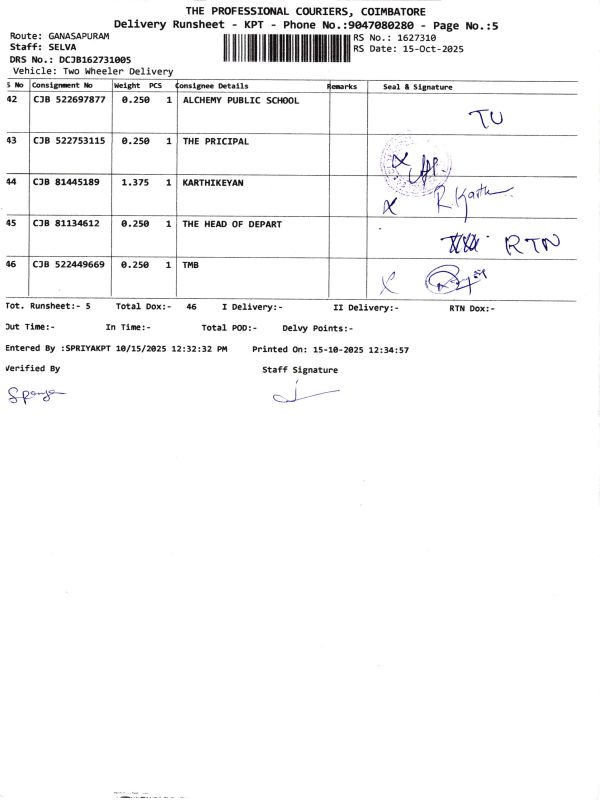 THE PROFESSIONAL COURIERS, COIMBATORE
Delivery Runsheet - KPT - Phone No.:9047080280 - Page No.:5
Route: GANASAPURAM RS No.: 1627310
Staff: SELVA RS Date: 15-Oct-2025
DRS No.: DCJB162731005
Vehicle: Two Wheeler Delivery
S No Consignment No Weight PCS Consignee Details Remarks Seal & Signature
42 CJB 522697877 0.250 1 ALCHEMY PUBLIC SCHOOL TU
43 CJB 522753115 0.250 1 THE PRICIPAL
44 CJB 81445189 1.375 1 KARTHIKEYAN R Karthi
45 CJB 81134612 0.250 1 THE HEAD OF DEPART RTN
46 CJB 522449669 0.250 1 TMB
Tot. Runsheet:- 5 Total Dox:- 46 I Delivery:- II Delivery:- RTN Dox:-
Out Time:- In Time:- Total POD:- Delvy Points:-
Entered By :SPRIYAKPT 10/15/2025 12:32:32 PM Printed On: 15-10-2025 12:34:57
Verified By Staff Signature